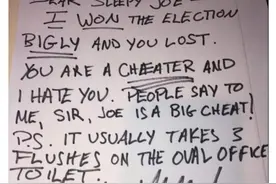 DEAR SLEEPY JOE
I WON THE ELECTION
BIGLY AND YOU LOST.
YOU ARE A CHEATER AND
I HATE YOU. PEOPLE SAY TO
ME, SIR, JOE IS A BIG CHEAT!
PS. IT USUALLY TAKES 3
FLUSHES ON THE OVAL OFFICE
TOILET.